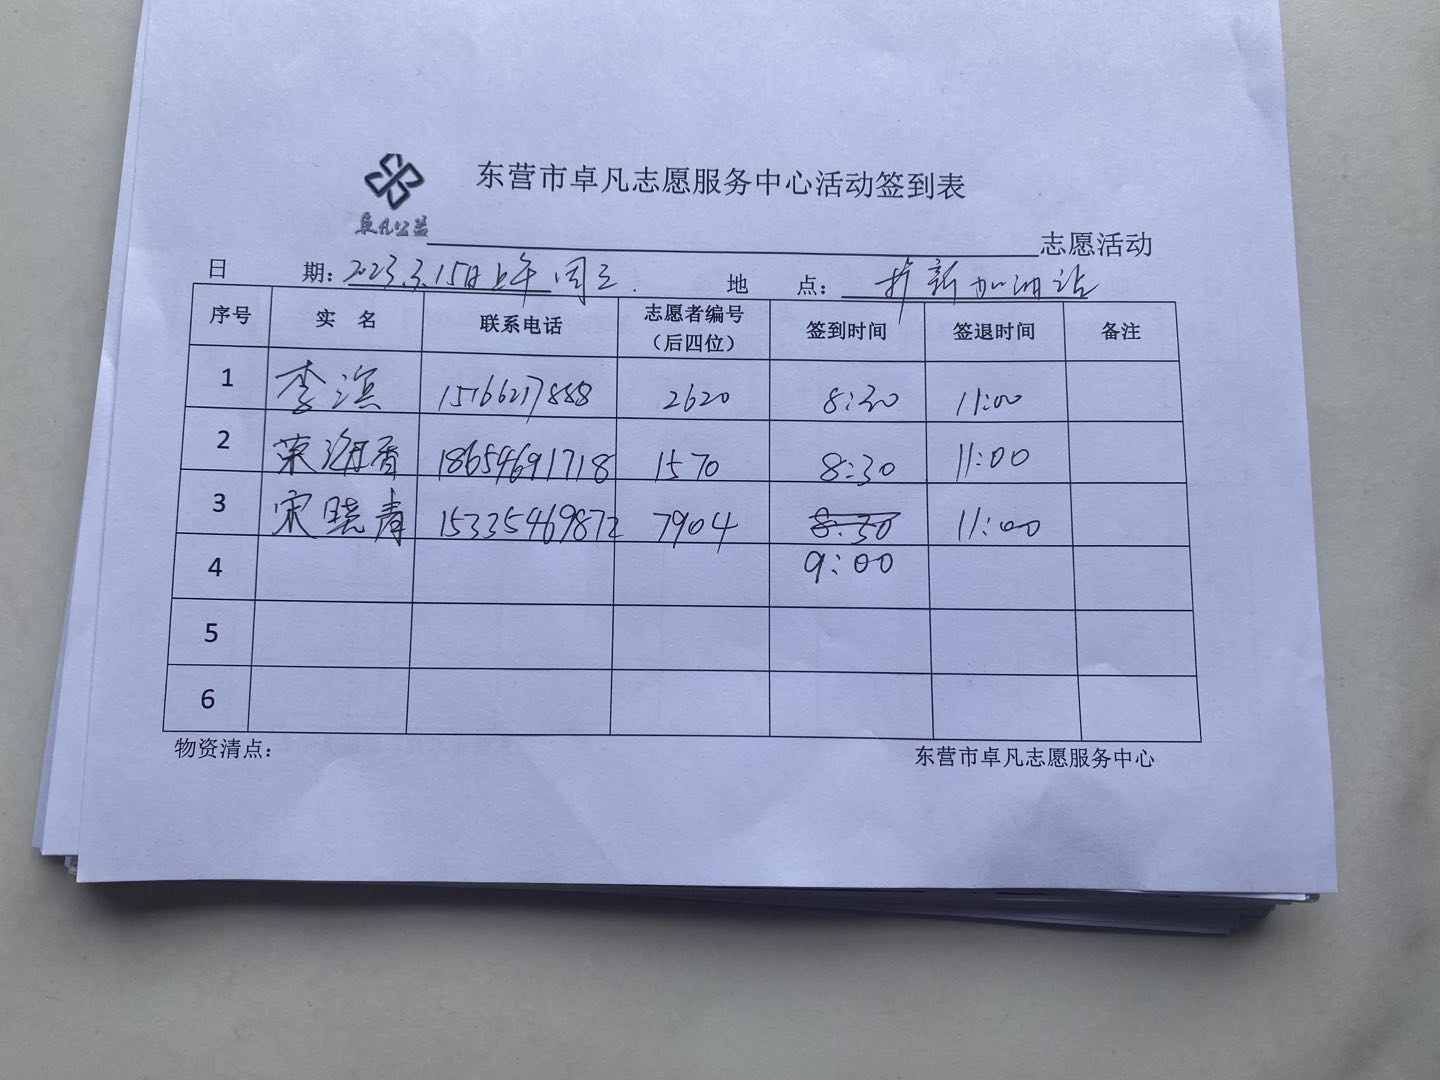 东营市卓凡志愿服务中心活动签到表
卓凡公益
志愿活动
日 期：2023.3.15日上午 周三. 地 点： 新加油站
序号 实 名 联系电话 志愿者编号（后四位） 签到时间 签退时间 备注
1 李滨 15166217888 2620 8:30 11:00
2 荣海香 18654691718 1570 8:30 11:00
3 宋晓青 15335469872 7904 8:30 11:00
4 9:00
5
6
物资清点： 东营市卓凡志愿服务中心